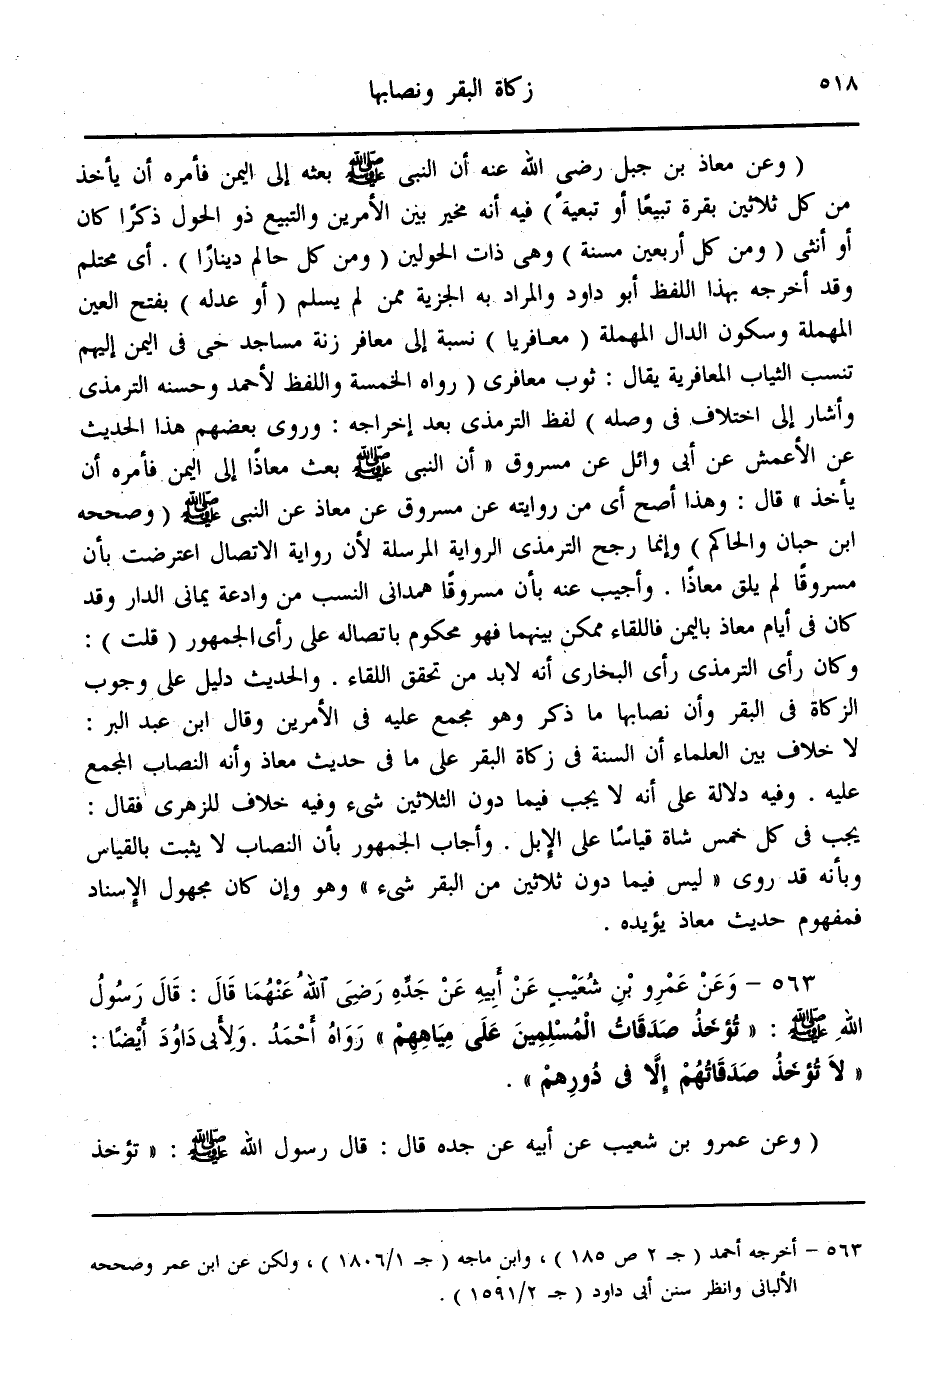 ٥١٨
زكاة البقر ونصابها
( وعن معاذ بن جبل رضى الله عنه أن النبى ﷺ بعثه إلى اليمن فأمره أن يأخذ
من كل ثلاثين بقرة تبيعًا أو تبعية ً) فيه أنه مخير بين الأمرين والتبيع ذو الحول ذكرًا كان
أو أنثى ( ومن كل أربعين مسنة ) وهى ذات الحولين ( ومن كل حالم دينارًا ) . أى محتلم
وقد أخرجه بهذا اللفظ أبو داود والمراد به الجزية ممن لم يسلم ( أو عدله ) بفتح العين
المهملة وسكون الدال المهملة ( معافريا ) نسبة إلى معافر زنة مساجد حى فى اليمن إليهم
تنسب الثياب المعافرية يقال : ثوب معافرى ( رواه الخمسة واللفظ لأحمد وحسنه الترمذى
وأشار إلى اختلاف فى وصله ) لفظ الترمذى بعد إخراجه : وروى بعضهم هذا الحديث
عن الأعمش عن أبى وائل عن مسروق « أن النبى ﷺ بعث معاذًا إلى اليمن فأمره أن
يأخذ » قال : وهذا أصح أى من روايته عن مسروق عن معاذ عن النبى ﷺ ( وصححه
ابن حبان والحاكم ) وإنما رجح الترمذى الرواية المرسلة لأن رواية الاتصال اعترضت بأن
مسروقًا لم يلق معاذًا . وأجيب عنه بأن مسروقًا همدانى النسب من وادعة يمانى الدار وقد
كان فى أيام معاذ باليمن فاللقاء ممكن بينهما فهو محكوم باتصاله على رأى الجمهور ( قلت ) :
وكان رأى الترمذى رأى البخارى أنه لابد من تحقق اللقاء . والحديث دليل على وجوب
الزكاة فى البقر وأن نصابها ما ذكر وهو مجمع عليه فى الأمرين وقال ابن عبد البر :
لا خلاف بين العلماء أن السنة فى زكاة البقر على ما فى حديث معاذ وأنه النصاب المجمع
عليه . وفيه دلالة على أنه لا يجب فيما دون الثلاثين شىء وفيه خلاف للزهرى فقال :
يجب فى كل خمس شاة قياسًا على الإبل . وأجاب الجمهور بأن النصاب لا يثبت بالقياس
وبأنه قد روى « ليس فيما دون ثلاثين من البقر شىء » وهو وإن كان مجهول الإسناد
فمفهوم حديث معاذ يؤيده .
٥٦٣ – وَعَنْ عَمْرِو بْنِ شُعَيْبٍ عَنْ أَبِيهِ عَنْ جَدِّهِ رَضِيَ ٱللهُ عَنْهُمَا قَالَ : قَالَ رَسُولُ
اللهِ ﷺ : « تُؤْخَذُ صَدَقَاتُ الْمُسْلِمِينَ عَلَى مِيَاهِهِمْ » رَوَاهُ أَحْمَدُ . وَلِأَبى دَاوُدَ أَيْضًا :
« لاَ تُؤْخَذُ صَدَقَاتُهُمْ إِلَّا فى دُورِهِمْ » .
( وعن عمرو بن شعيب عن أبيه عن جده قال : قال رسول الله ﷺ : « تؤخذ
٥٦٣ – أخرجه أحمد ( جـ ٢ ص ١٨٥ ) ، وابن ماجه ( جـ ١٨٠٦/١ ) ، ولكن عن ابن عمر وصححه
الألبانى وانظر سنن أبى داود ( جـ ١٥٩١/٢ ) .